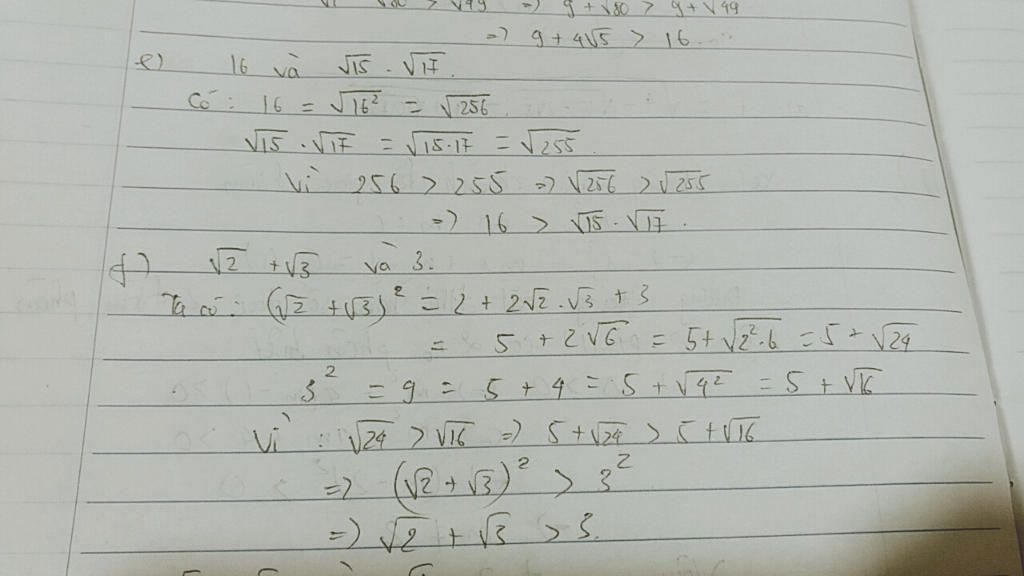 √80 > √49 => 9 + √80 > 9 + √49
=> 9 + 4√5 > 16.
e) 16 và √15 . √17.
Có : 16 = √16² = √256.
√15 . √17 = √15.17 = √255.
Vì 256 > 255 => √256 > √255
=> 16 > √15 . √17.
f) √2 + √3 và 3.
Ta có : (√2 + √3)² = 2 + 2√2 . √3 + 3
= 5 + 2√6 = 5 + √2².6 = 5 + √24
3² = 9 = 5 + 4 = 5 + √4² = 5 + √16
Vì : √24 > √16 => 5 + √24 > 5 + √16
=> (√2 + √3)² > 3²
=> √2 + √3 > 3.